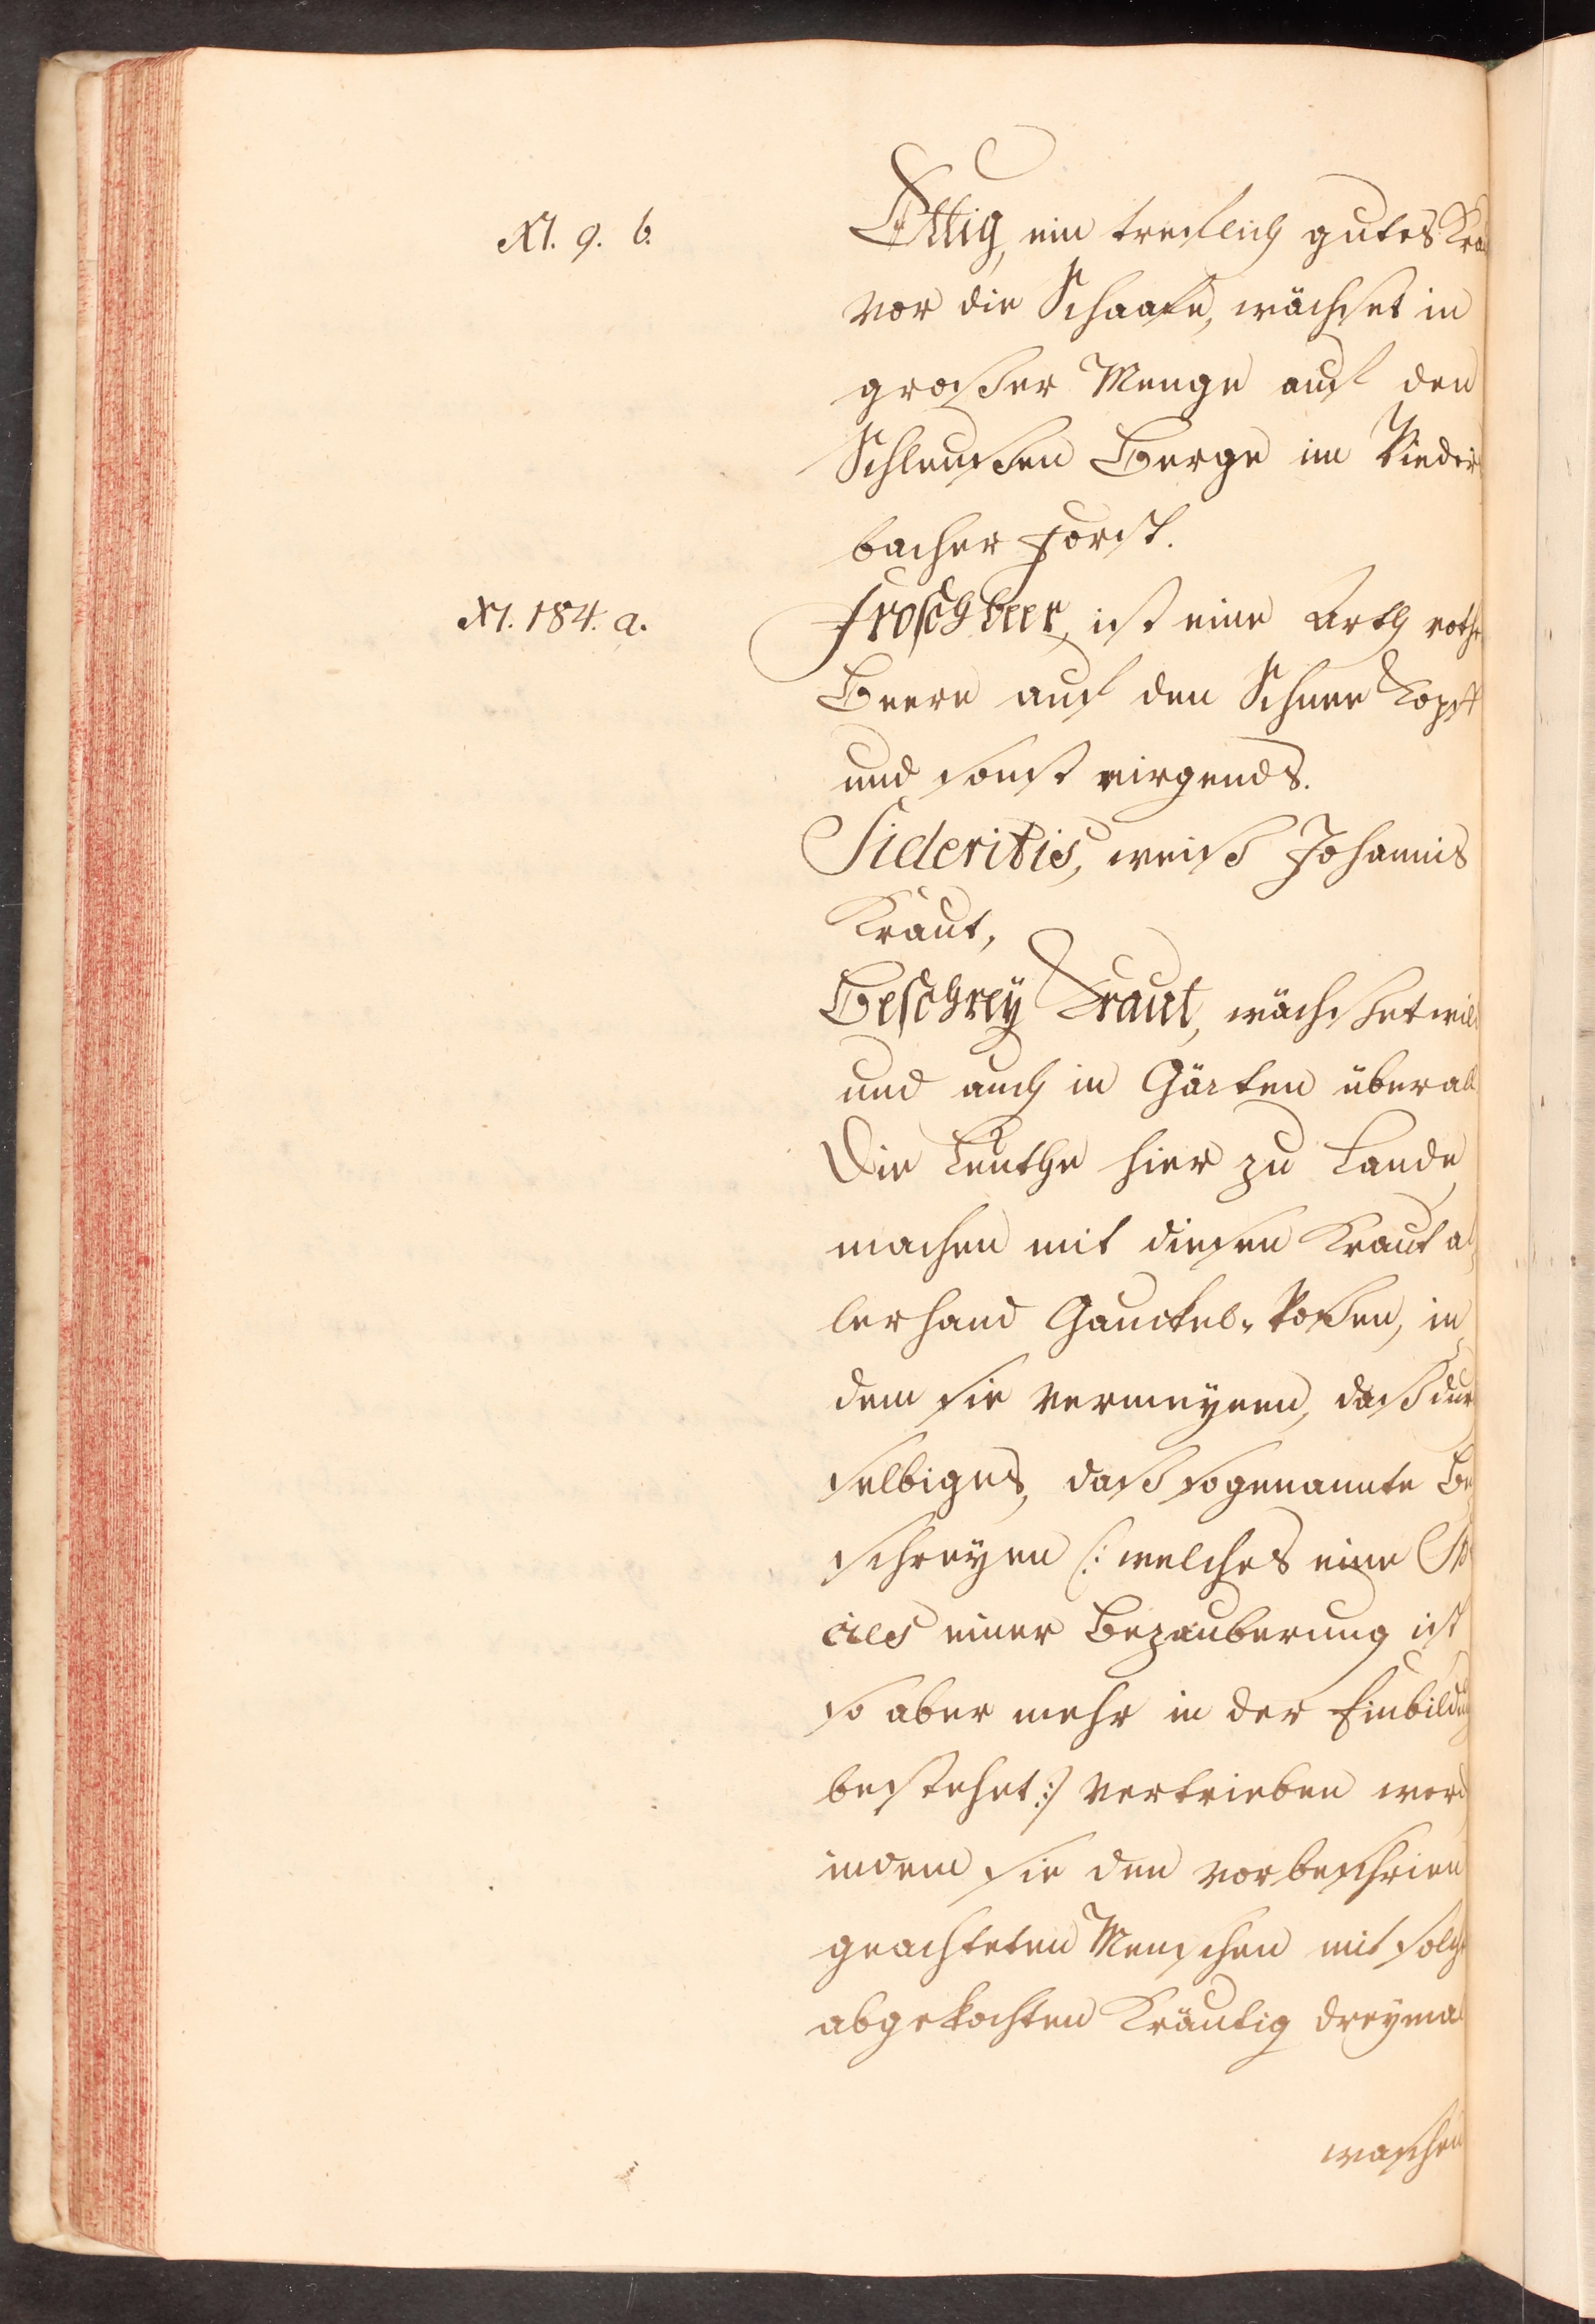 XI. 9. b.
Ettig, ein treflich gutes Krau
vor die Schaafe, wächset in
großer Menge auf den
Schleußen Berge im Nieder
bacher Forst.
XI. 184. a.
Froschbeer, ist eine Arth rothe
Beere auf den Schnee Kopff
und sonst nirgends.
Sideritis, weiß Johannis
Kraut,
Beschrey Kraut, wächßet wild
und auch in Gärten überall
Die Leuthe hier zu Lande,
machen mit diesen Kraut al
lerhand Gauckel-Poßen, in
dem sie vermeynen, daß dur
selbiges, daß sogenannte Be
schreyen /: welches eine Spe
cies einer Bezauberung ist
so aber mehr in der Einbildung
bestehet :/ vertrieben werd
indem sie den vor beschrien
geachteten Menschen mit solch
abgekochten Kräutig dreymal
waschen